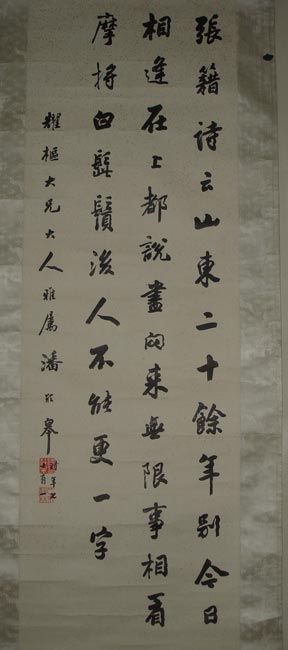 張籍诗云山東二十餘年别今日
相逢在上都說盡向来無限事相看
摩捋白髭鬚後人不能更一字
耀樞大兄大人雅属 潘齡皋